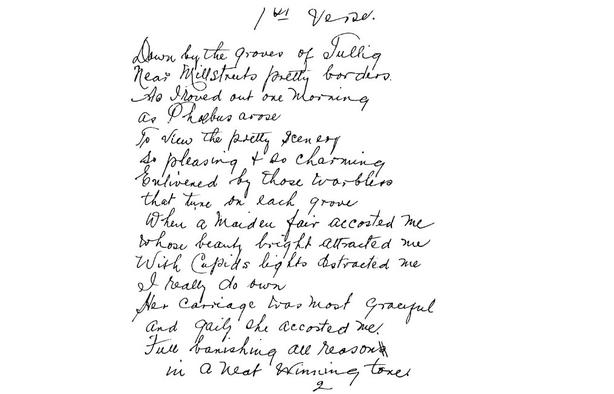 1st Verse.
Down by the groves of Tullig
Near Millstreets pretty borders.
As I roved out one Morning
as Phoebus arose
To View the pretty Scenery
So pleasing & so charming
Enlivened by those warblers
that tune on each grove
When a Maiden fair accosted me
whose beauty bright attracted me
With Cupids lights distracted me
I really do own
Her carriage was most Graceful
and gaily she accosted me.
Full banishing all reason
in a Neat Winning tone
2